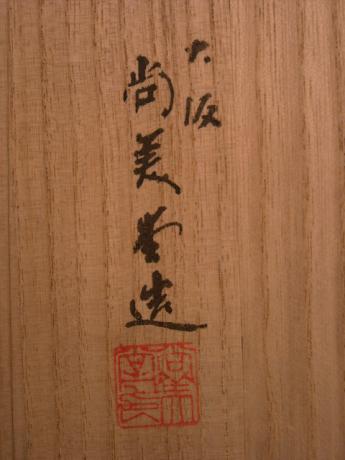 大阪
尚美堂造